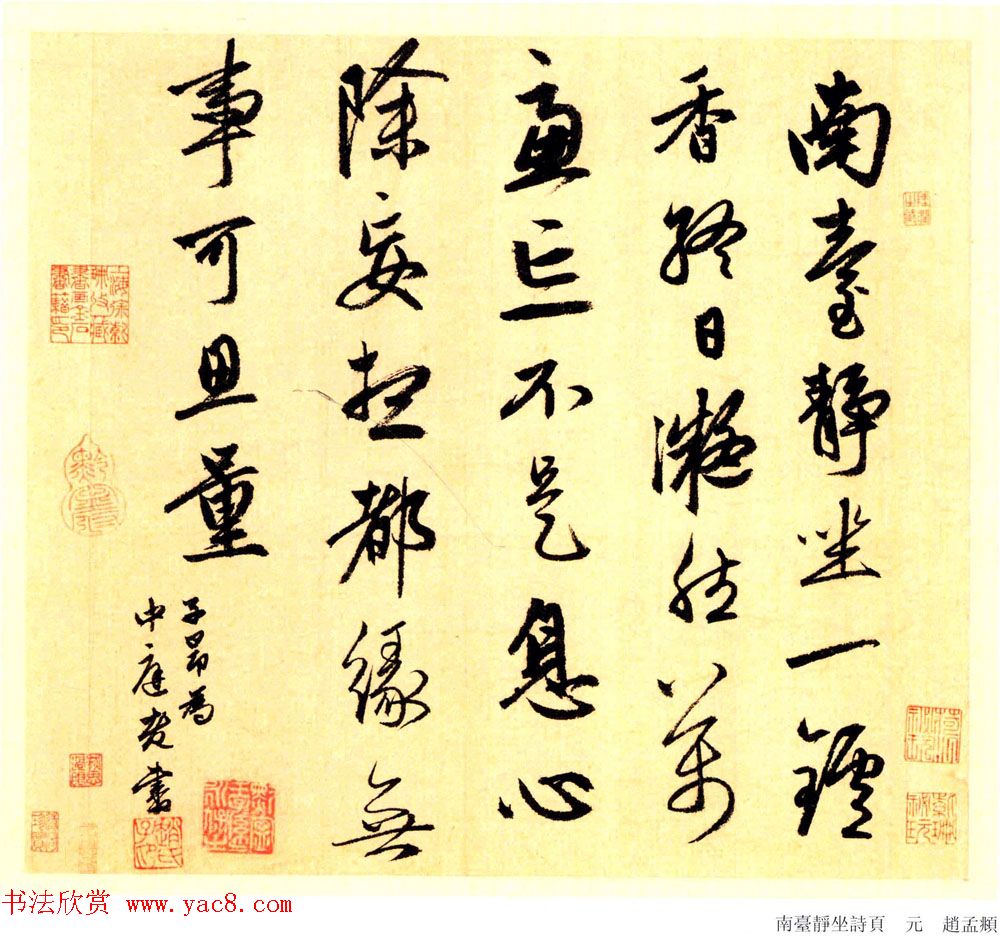 南臺靜坐一鑪
香終日凝然萬
慮亡不是息心
除妄想都緣無
事可思量
子昂為
中庭老書
趙氏子昂
书法欣赏 www.yac8.com
南臺靜坐詩頁 元 趙孟頫